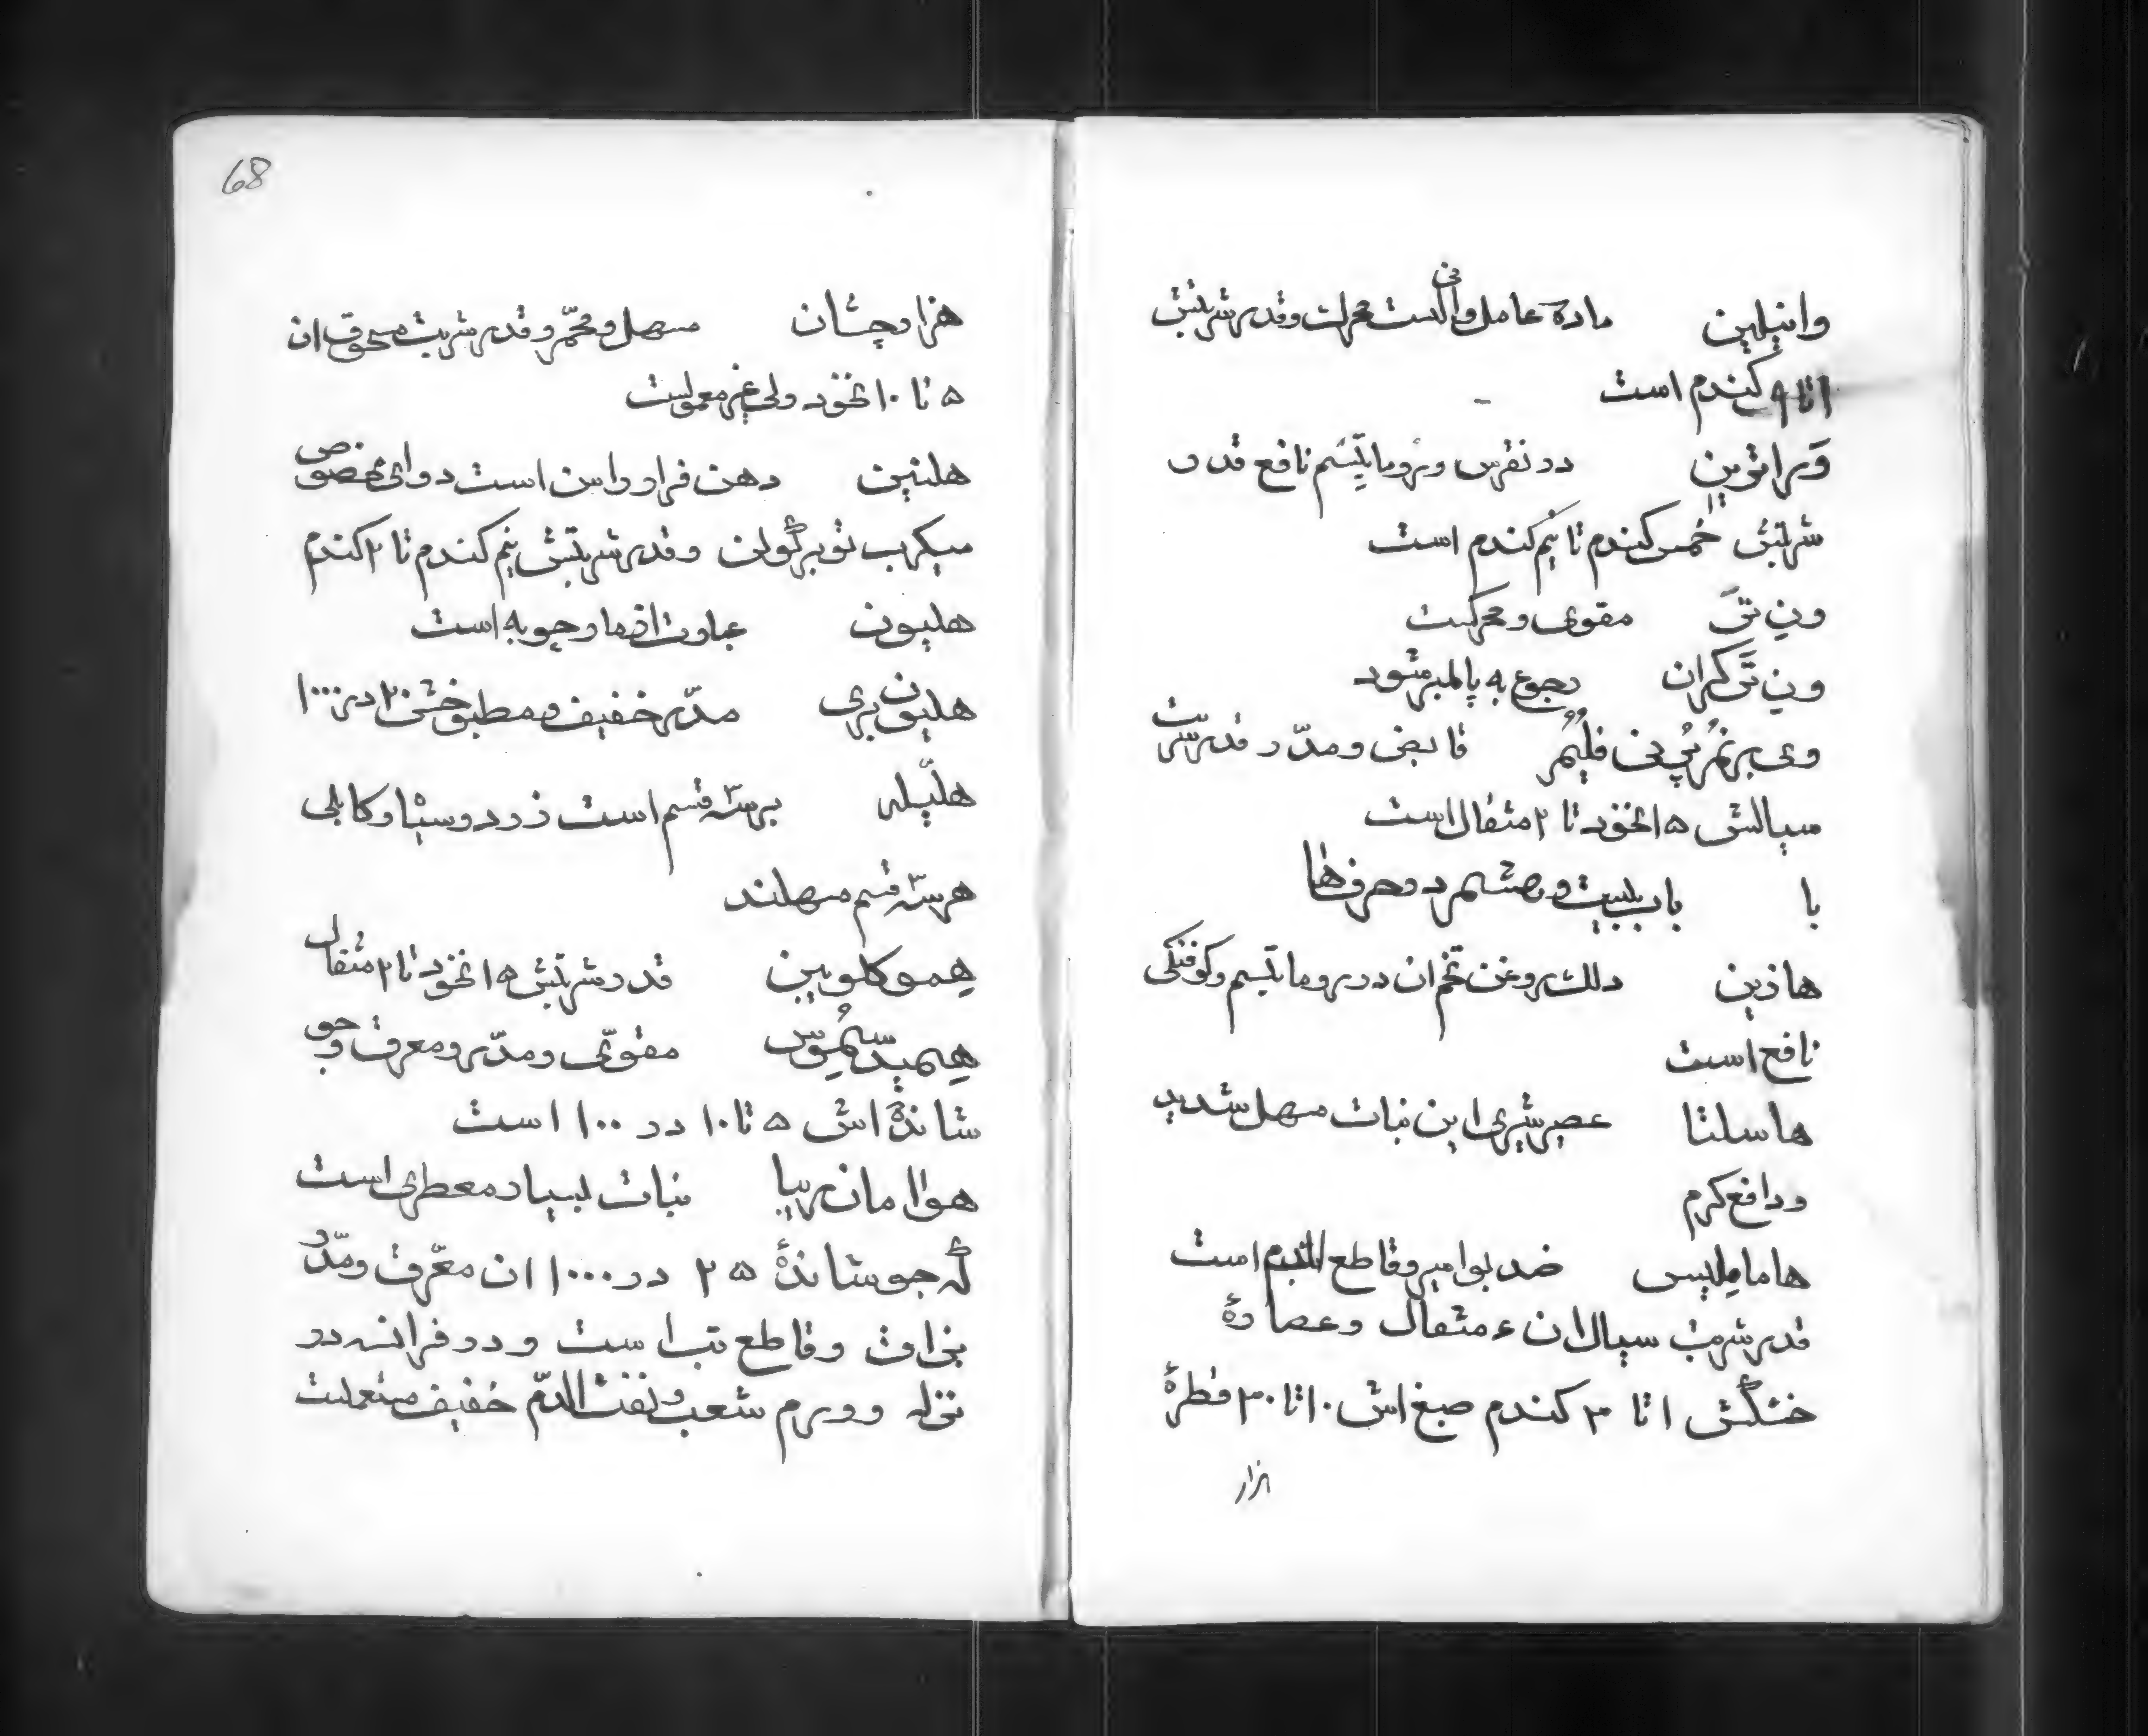 وانیلین ماده عامل وانی الست محرکت وقدر شربتش
۱ تا ۹ کندم است
وراترین در نقرس و روماتیسم نافع قد ر
شربتش خمس کندم تا نیم کندم است
ون تن مقوی و محرکست
ون تن کران رجوع به پالمبر شود
وی برنم پرنی فلیم قابض و مدر و قدر شربت
سیالش ۱۵ نخود تا ۲ مثقال است
با باب بیست و هشتم در حرف ها
هاذین دلک روغن تخم ان در روماتیسم و کوفتکی
نافع است
هاسلتا عصیر شیری این نبات مسهل شدید
و دافع کرم
هامامیلیس ضد بواسیر و قاطع الدم است
قدر شربت سیال ان ۴ مثقال و عصارهٔ
خشکش ۱ تا ۳ کندم صبغ اش ۱۰ تا ۳۰ قطرهٔ
هزار
68
هزار چشان مسهل و محمر و قدر شربت مسحوق ان
۵ تا ۱۰ نخود ولی غیر معمولست
هلنین دهن فرار و اس است دوای مخصوص
میکرب توبرکولن و قدر شربتش نیم کندم تا ۲ کندم
هلیون عبارت از مارچوبه است
هلیون بری مدر خفیف و مطبوخش ۲۰ در ۱۰۰۰
هلیله بر سه قسم است زرد و سیاه و کابلی
هر سه قسم مسهلند
هموکلوبین قدر شربتش ۱۵ نخود تا ۲ مثقال
همیدسموس مقوی و مدر و معرق و جو
شاندهٔ اش ۵ تا ۱۰ در ۱۰۰ است
هواامان ریبا نبات بسیار معطری است
که جوشاندهٔ ۲۵ در ۱۰۰۰ ان معرق و مدر
بزاق و قاطع تب است و در فرانسه در
نزله و ورم شعب و نفث الدم خفیف مستعملست